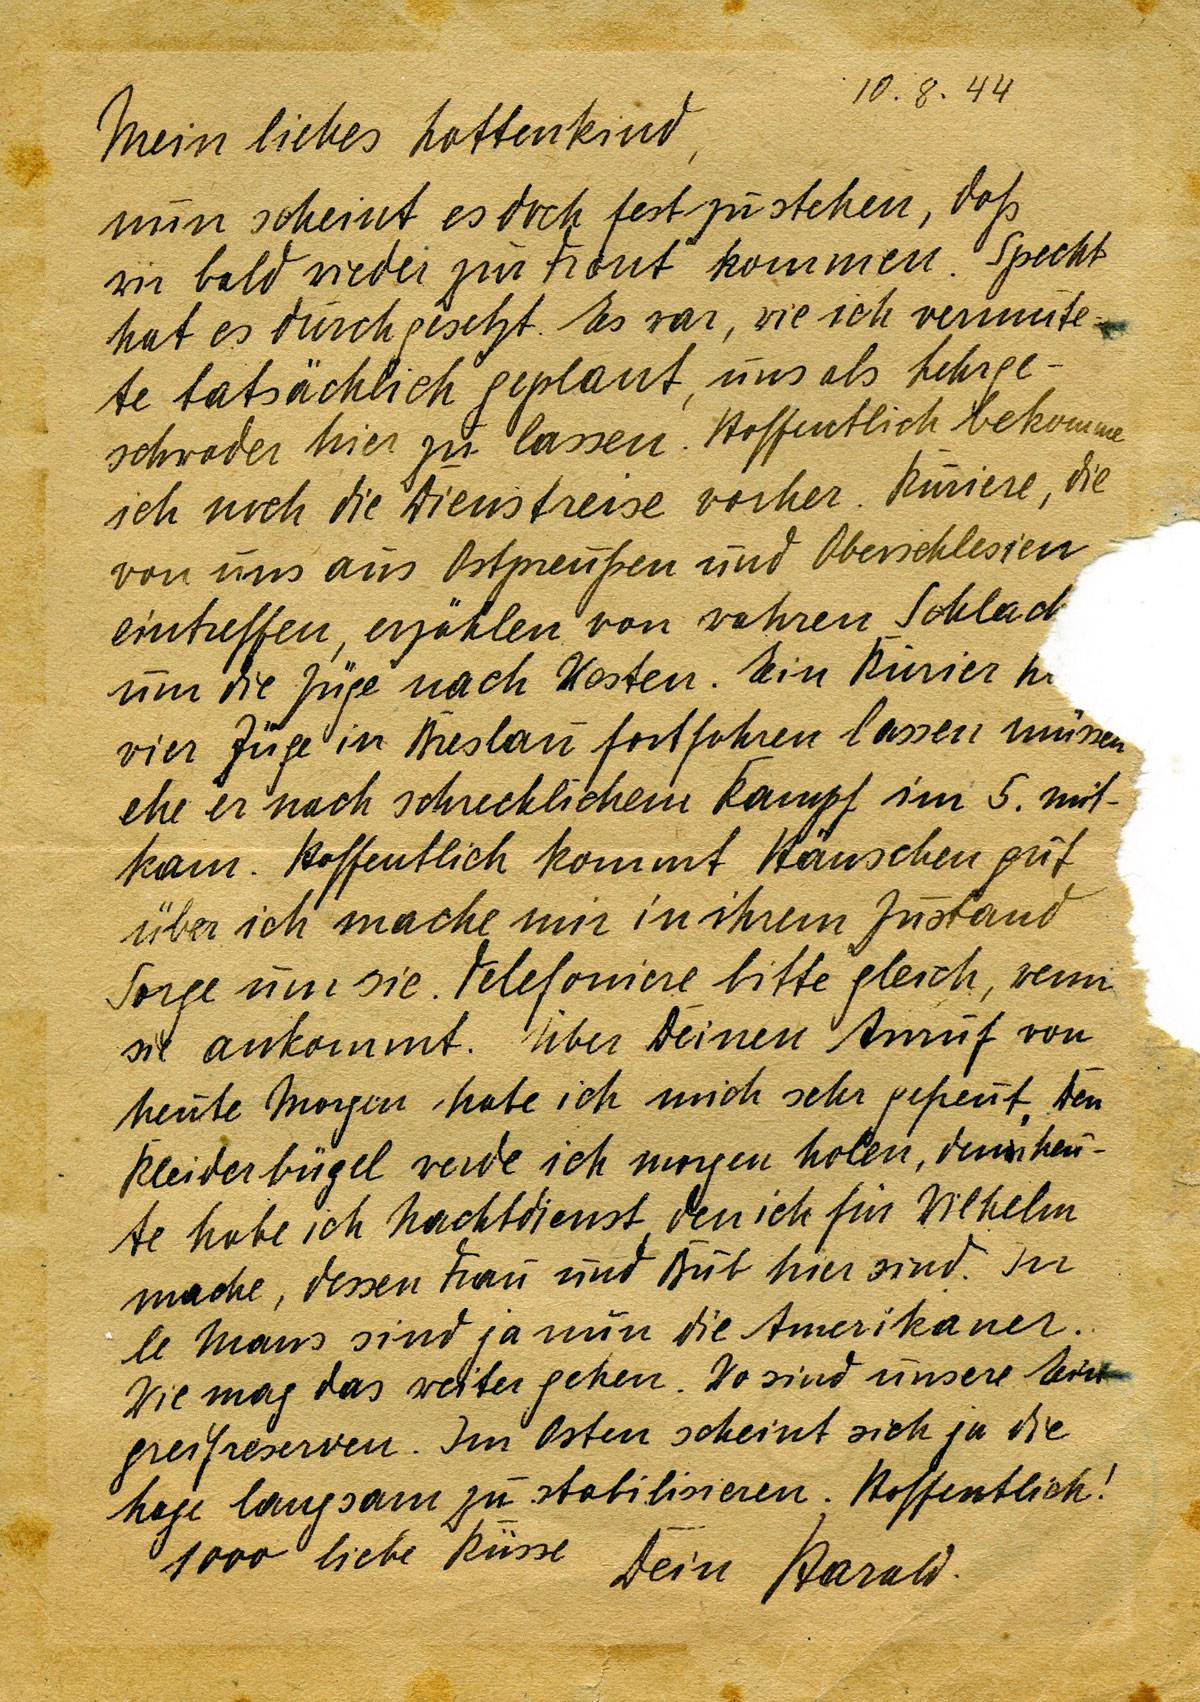 10. 8. 44
Mein liebes Lottenkind,
nun scheint es doch festzustehen, daß
wir bald wieder zur Front kommen. Specht
hat es durchgesetzt. Es war, wie ich vermute-
te tatsächlich geplant, uns als Lehrge-
schwader hier zu lassen. Hoffentlich bekomme
ich noch die Dienstreise vorher. Kuriere, die
von uns aus Ostpreußen und Oberschlesien
eintreffen, erzählen von wahren Schlach
um die Züge nach Westen. Ein Kurier h
vier Züge in Breslau fortfahren lassen müssen
ehe er nach schrecklichem Kampf im 5. mit-
kam. Hoffentlich kommt Häuschen gut
über ich mache mir in ihrem Zustand
Sorge um sie. Telefoniere bitte gleich, wenn
sie ankommt. Über Deinen Anruf von
heute Morgen habe ich mich sehr gefreut. Den
Kleiderbügel werde ich morgen holen, denn heu-
te habe ich Nachtdienst, den ich für Wilhelm
mache, dessen Frau und Bub hier sind. In
le Mans sind ja nun die Amerikaner.
Wie mag das weiter gehen. Wo sind unsere Ein
greifreserven. Im Osten scheint sich ja die
Lage langsam zu stabilisieren. Hoffentlich!
1000 liebe Küsse Dein Harald.